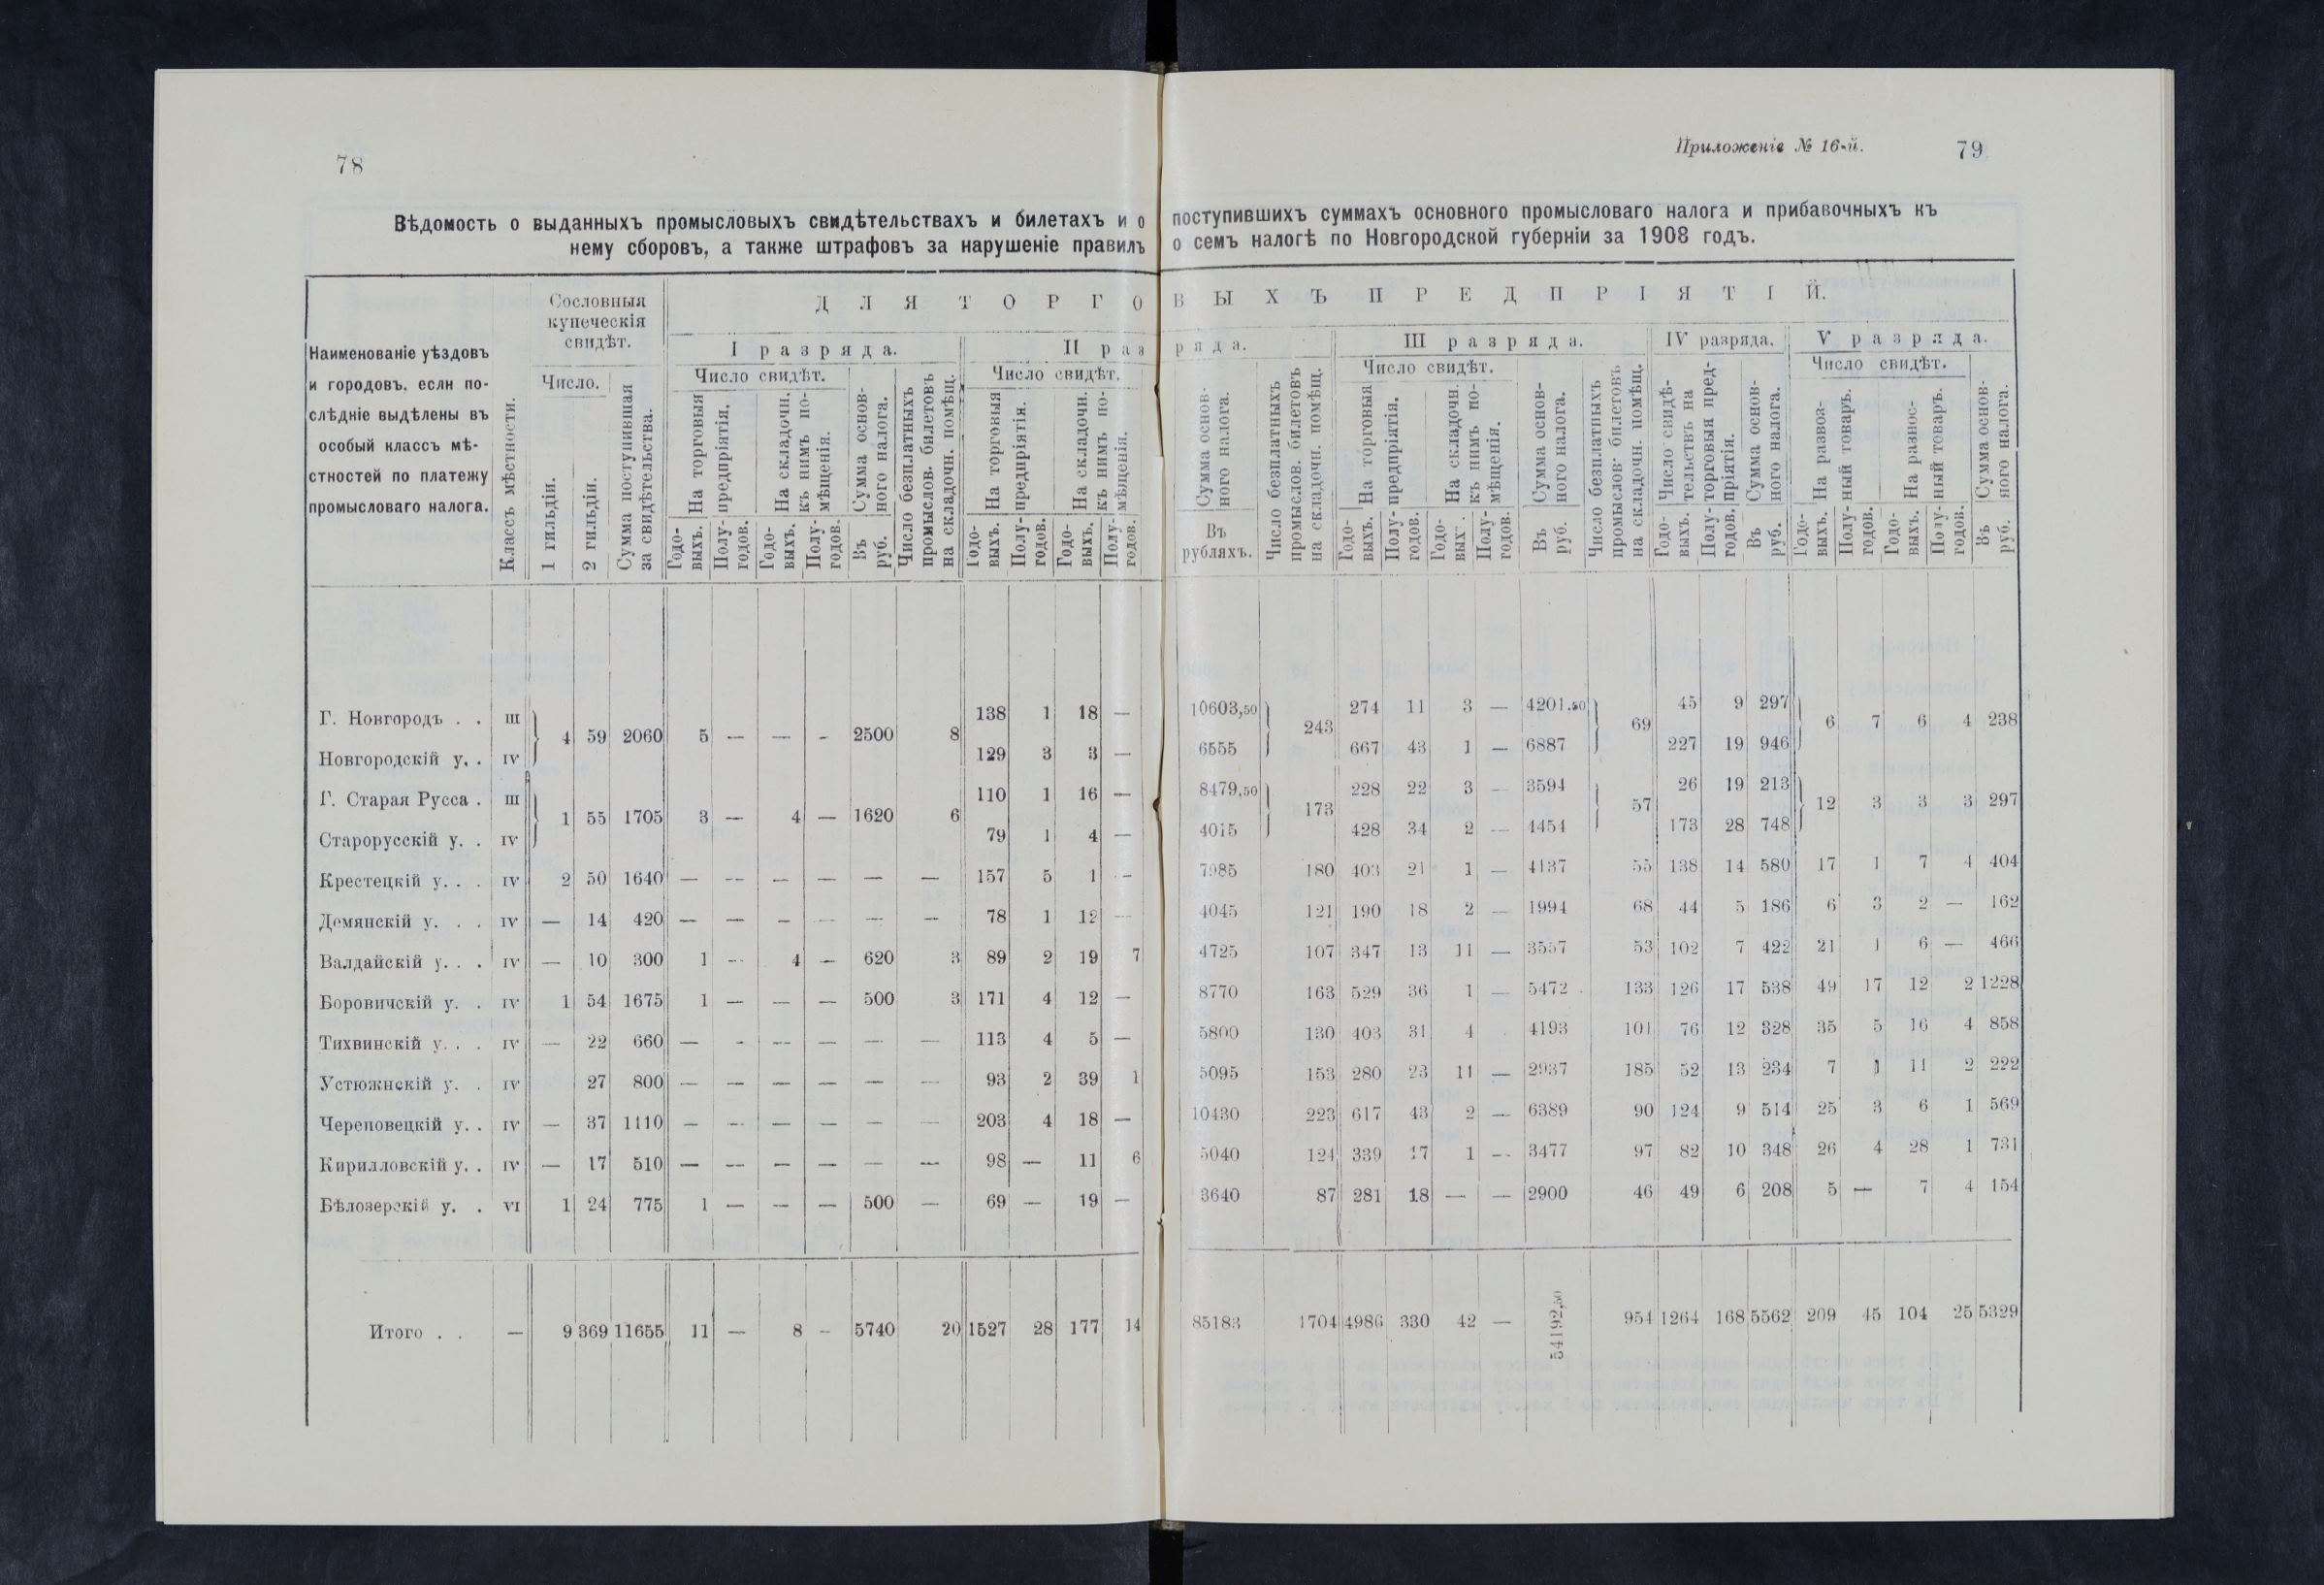 78
Приложеніе № 16-й. 79
Вѣдомость о выданныхъ промысловыхъ свидѣтельствахъ и билетахъ и о поступившихъ суммахъ основного промысловаго налога и прибавочныхъ къ
нему сборовъ, а также штрафовъ за нарушеніе правилъ о семъ налогѣ по Новгородской губерніи за 1908 годъ.
Наименованіе уѣздовъ
и городовъ, если по-
слѣдніе выдѣлены въ
особый классъ мѣ-
стностей по платежу
промысловаго налога.
Классъ мѣстности.
Сословныя
купеческія
свидѣт.
Число.
1 гильдіи.
2 гильдіи.
Сумма поступившая
за свидѣтельства.
ДЛЯ ТОРГОВЫХЪ ПРЕДПРІЯТІЙ.
I разряда.
Число свидѣт.
На торговыя
предпріятія.
Годо-
выхъ.
Полу-
годов.
На складочн.
къ нимъ по-
мѣщенія.
Годо-
выхъ.
Полу-
годов.
Сумма основ-
ного налога.
Въ
руб.
Число безплатныхъ
промыслов. билетовъ
на складочн. помѣщ.
II разряда.
Число свидѣт.
На торговыя
предпріятія.
Годо-
выхъ.
Полу-
годов.
На складочн.
къ нимъ по-
мѣщенія.
Годо-
выхъ.
Полу-
годов.
Сумма основ-
ного налога.
Въ
рубляхъ.
Число безплатныхъ
промыслов. билетовъ
на складочн. помѣщ.
III разряда.
Число свидѣт.
На торговыя
предпріятія.
Годо-
выхъ.
Полу-
годов.
На складочн.
къ нимъ по-
мѣщенія.
Годо-
вых.
Полу-
годов.
Сумма основ-
ного налога.
Въ
руб.
Число безплатныхъ
промыслов. билетовъ
на складочн. помѣщ.
IV разряда.
Число свидѣ-
тельствъ на
торговыя пред-
пріятія.
Годо-
выхъ.
Полу-
годов.
Сумма основ-
ного налога.
Въ
руб.
V разряда.
Число свидѣт.
На развоз-
ный товаръ.
Годо-
выхъ.
Полу-
годов.
На разнос-
ный товаръ.
Годо-
выхъ.
Полу-
годов.
Сумма основ-
ного налога.
Въ
руб.
Г. Новгородъ . . III 138 1 18 — 10603,50 274 11 3 — 4201,50 45 9 297
4 59 2060 5 — — - 2500 8 243 69 6 7 6 4 238
Новгородскій у. . IV 129 3 3 — 6555 667 43 1 — 6887 227 19 946
Г. Старая Русса . III 110 1 16 — 8479,50 228 22 3 — 3594 26 19 213
1 55 1705 3 — 4 — 1620 6 173 57 12 3 3 3 297
Старорусскій у. . IV 79 1 4 — 4015 428 34 2 — 4454 173 28 748
Крестецкій у. . . IV 2 50 1640 — — — — — — 157 5 1 — 7985 180 403 21 1 — 4137 55 138 14 580 17 1 7 4 404
Демянскій у. . . IV — 14 420 — — — — — — 78 1 12 — 4045 121 190 18 2 — 1994 68 44 5 186 6 3 2 — 162
Валдайскій у. . . IV — 10 300 1 — 4 — 620 3 89 2 19 7 4725 107 347 13 11 — 3557 53 102 7 422 21 1 6 — 466
Боровичскій у. . IV 1 54 1675 1 — — — 500 3 171 4 12 — 8770 163 529 36 1 — 5472 133 126 17 538 49 17 12 2 1228
Тихвинскій у. . . IV — 22 660 — - — — — — 113 4 5 — 5800 130 403 31 4 4193 101 76 12 328 35 5 16 4 858
Устюжнскій у. . IV 27 800 — — — — — — 93 2 39 1 5095 153 280 23 11 — 2937 185 52 13 234 7 1 11 2 222
Череповецкій у. . IV — 37 1110 — — — — — — 203 4 18 — 10430 223 617 43 2 — 6389 90 124 9 514 25 3 6 1 569
Кирилловскій у. . IV — 17 510 — — — — — — 98 — 11 6 5040 124 339 17 1 — 3477 97 82 10 348 26 4 28 1 731
Бѣлозерскій у. . VI 1 24 775 1 — — — 500 — 69 — 19 — 3640 87 281 18 — — 2900 46 49 6 208 5 — 7 4 154
Итого . . — 9 369 11655 11 — 8 - 5740 20 1527 28 177 14 85183 1704 4986 330 42 — 54192,50 954 1264 168 5562 209 45 104 25 5329